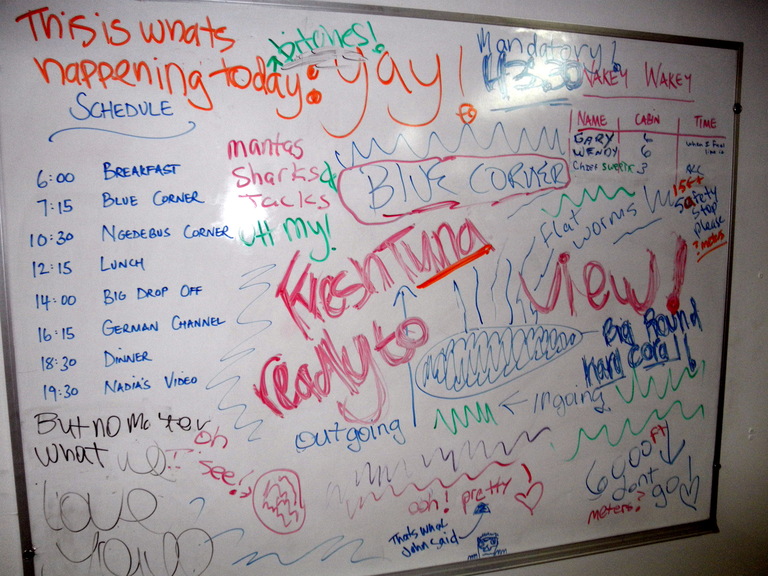 This is whats
happening today: yay!
bitches!
Mandatory!
WAKEY WAKEY
SCHEDULE
6:00 BREAKFAST
7:15 BLUE CORNER
10:30 NGEDEBUS CORNER
12:15 LUNCH
14:00 BIG DROP OFF
16:15 GERMAN CHANNEL
18:30 DINNER
19:30 NADIA'S VIDEO
mantas
Sharks &
Jacks
OH my!
BLUE CORNER
NAME CABIN TIME
GARY 6
WENDY 6
3
Safety
Stop
please
? meters
flat
worms
Fresh Tuna
ready to
View!
Big Round
hard coral!
outgoing
ingoing
But no matter
what we
Love
You
oh
see!
ooh! pretty!
Thats what
John said
6000 FT
dont
go!
meters?